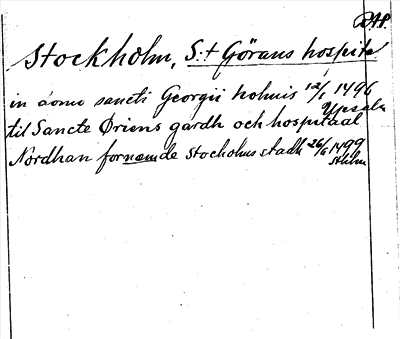 DAP.
Stockholm, S:t Görans hospital
in domo sancti Georgii holmis 12/1 1496
Upsala
til Sancte Øriens gardh och hospitaal
Nordhan fornemde Stocholms stadh 26/6 1499
Sthlm